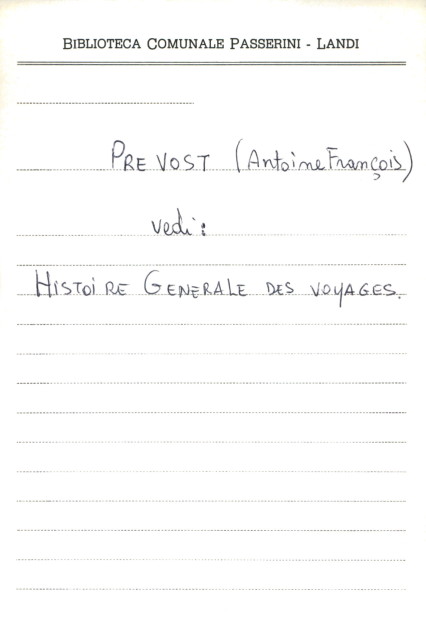 BIBLIOTECA COMUNALE PASSERINI - LANDI
PREVOST (Antoine François)
vedi:
HISTOIRE GENERALE DES VOYAGES.